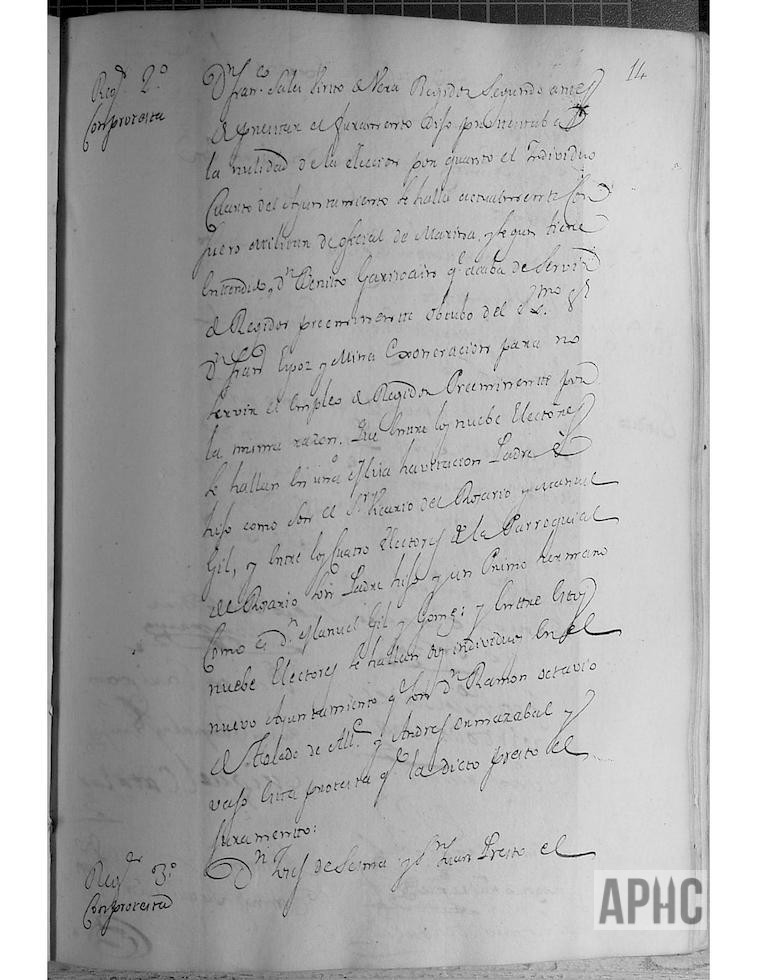 14
Regr. 2.º
Con protesta
Dn Fran.co Sales Pinto de Vera Regidor Segundo antes
de prestar el Juramento Dijo protestaba
la nulidad de la eleccion por quanto el Individuo
Cuarto del Ayuntamiento se halla actualmente Con
fuero militar de oficial de Marina, y segun tiene
Entendido, dn Benito q.e acaba de Servir
de Regidor preeminente obtubo del Ex.mo Sr
Dn Fran.co Espoz y Mina Exoneracion para no
servir el Empleo de Regidor Preeminente por
la misma razon. Que Entre los nuebe Electores
se hallan En una misma havitacion Padre e
hijo como son el Sr Vicario del Rosario y Manuel
Gil, y Entre los Cuatro Electores de la Parroquial
del Rosario son Padre hijo y un Primo hermano
Como es dn Manuel Gil y Gomez: y Entre Estos
nuebe Electores se hallan dos individuos En el
nuevo Ayuntamiento q.e son dn Ramon octavio
de Toledo de Alc.e y Andres ormazabal y
vajo Esta protesta q.e la dicto presto el
Juramento:
Regr. 3.º
Con protesta
Dn Luis de Sesma y Sn Juan Presto el
APHC